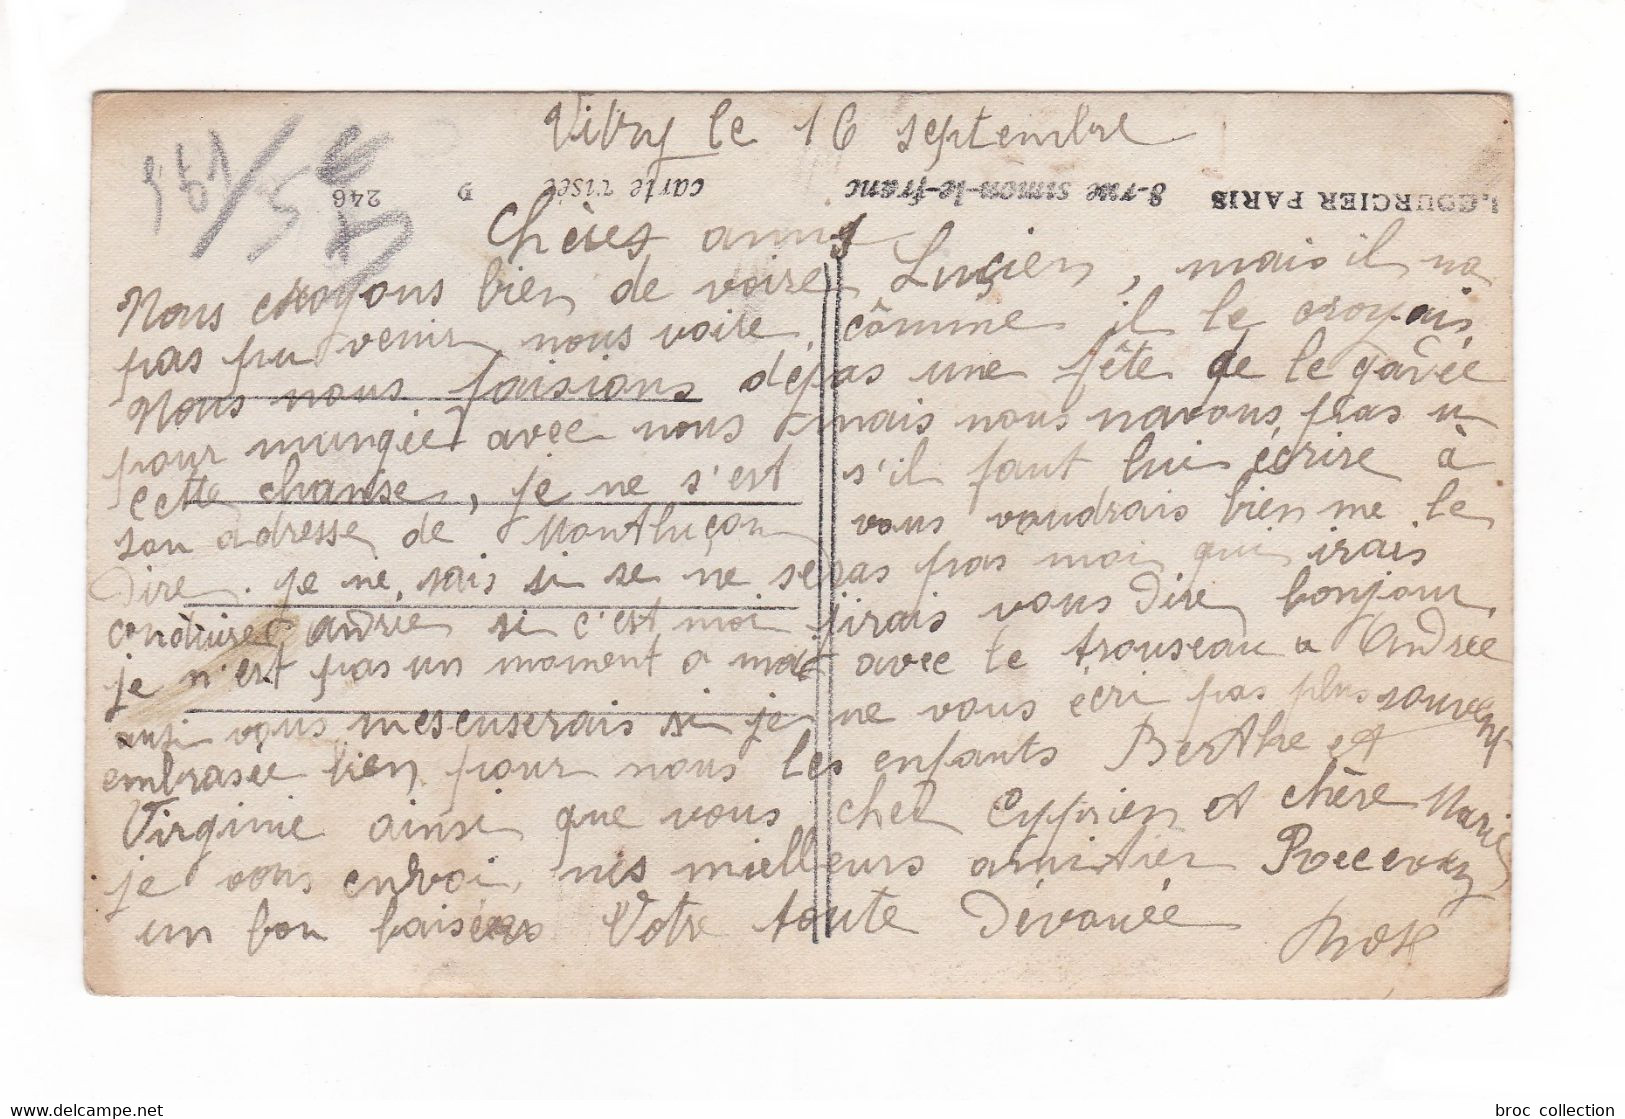 Vitry le 16 septembre
J. COURCIER PARIS 8-rue simon-le-franc carte visée D 246
Chères amis
Nous croyons bien de voire Lucien, mais il na
pas pu venir nous voire, cômme il le croyais
Nous nous faisions dépas une fête de le gardée
pour mungée avec nous mais nous navons pas u
cette chanse, je ne s'est s'il faut lui écrire à
son adresse de Montluçon vous voudrais bien me le
Dire. je ne sais si se ne seras pas moi qui irais
conduire andrée si c'est moi jirais vous Dire bonjour
je n'est pas un moment a moi avec le trouseau a Andrée
ausi vous mescuserais si je ne vous écri pas plus souvent
embrasée bien pour nous les enfants Berthe et
Virginie ainsi que vous cher Cyprien et chère Marie
je vous envoi, mes mielleurs amitier Recevez
un bon baisers Votre toute Dévouée
Rose
broc collection